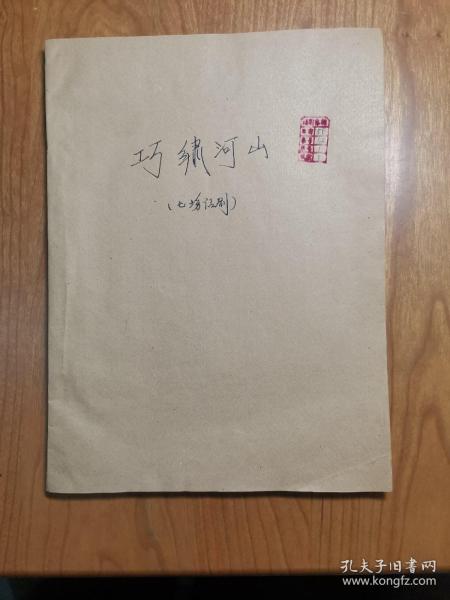 巧绣河山
（七场话剧）
孔夫子旧书网
www.kongfz.com